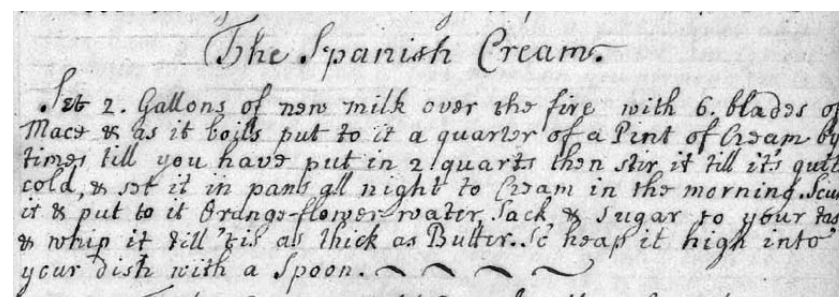 The Spanish Cream.
Set 2. Gallons of new milk over the fire with 6. blades of
Mace & as it boils put to it a quarter of a Pint of Cream by
times till you have put in 2 quarts then stir it till it's
cold, & set it in pans all night to Cream in the morning.
it & put to it Orange-flower-water, Sack & Sugar to your
& whip it till 'tis as thick as Butter. So heap it high into
your dish with a Spoon.